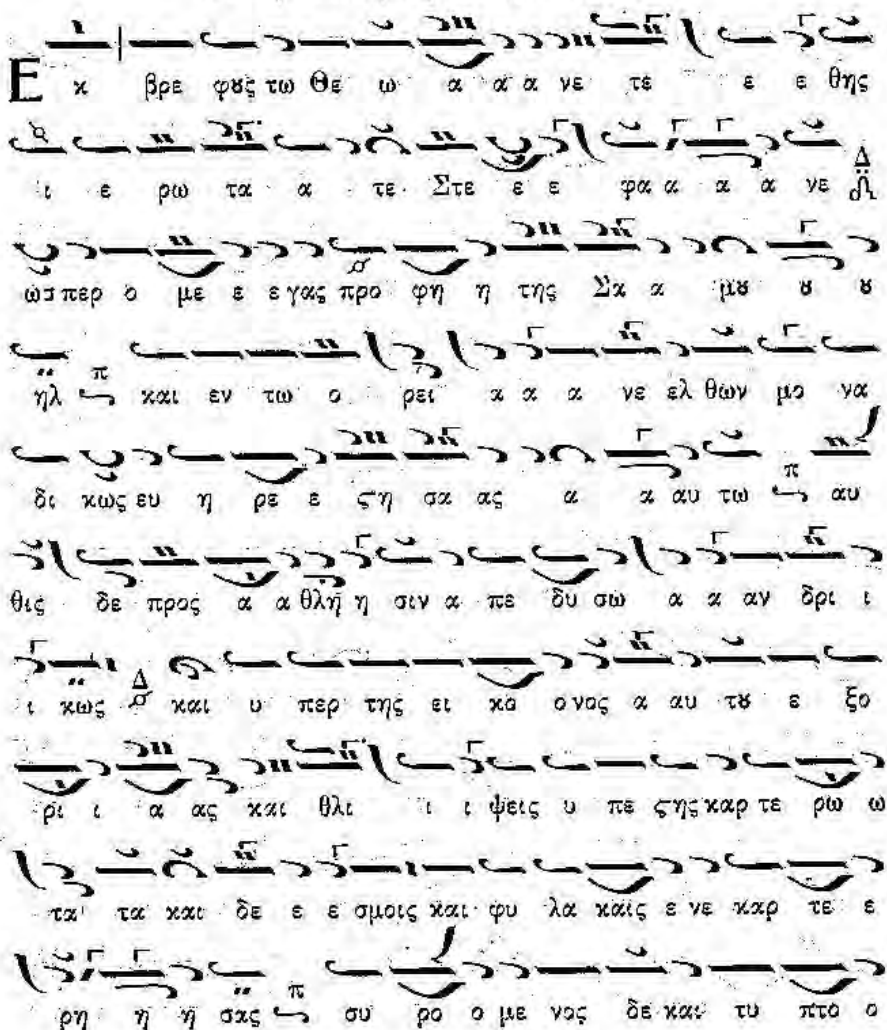 Ε κ βρε φȣς τω Θε ω α α α νε τε ε ε θης
ι ε ρω τα α τε Στε ε ε φα α α α νε Δ
ωσπερ ο με ε ε γας προ φη η της Σα α μȣ ȣ ȣ
ηλ π και εν τω ο ρει α α α νε ελ θων μο να
δι κως ευ η ρε ε ϛη σα ας α α αυ τω π αυ
θις δε προς α α θλη η σιν α πε δυ σω α α αν δρι ι
ι κως Δ και υ περ της ει κο ο νος α αυ τȣ ε ξο
ρι ι α ας και θλι ι ι ψεις υ πε ϛης καρ τε ρω ω
τα τα και δε ε ε σμοις και φυ λα καις ε νε καρ τε ε
ρη η η σας π συ ρο ο με νος δε και τυ πτο ο